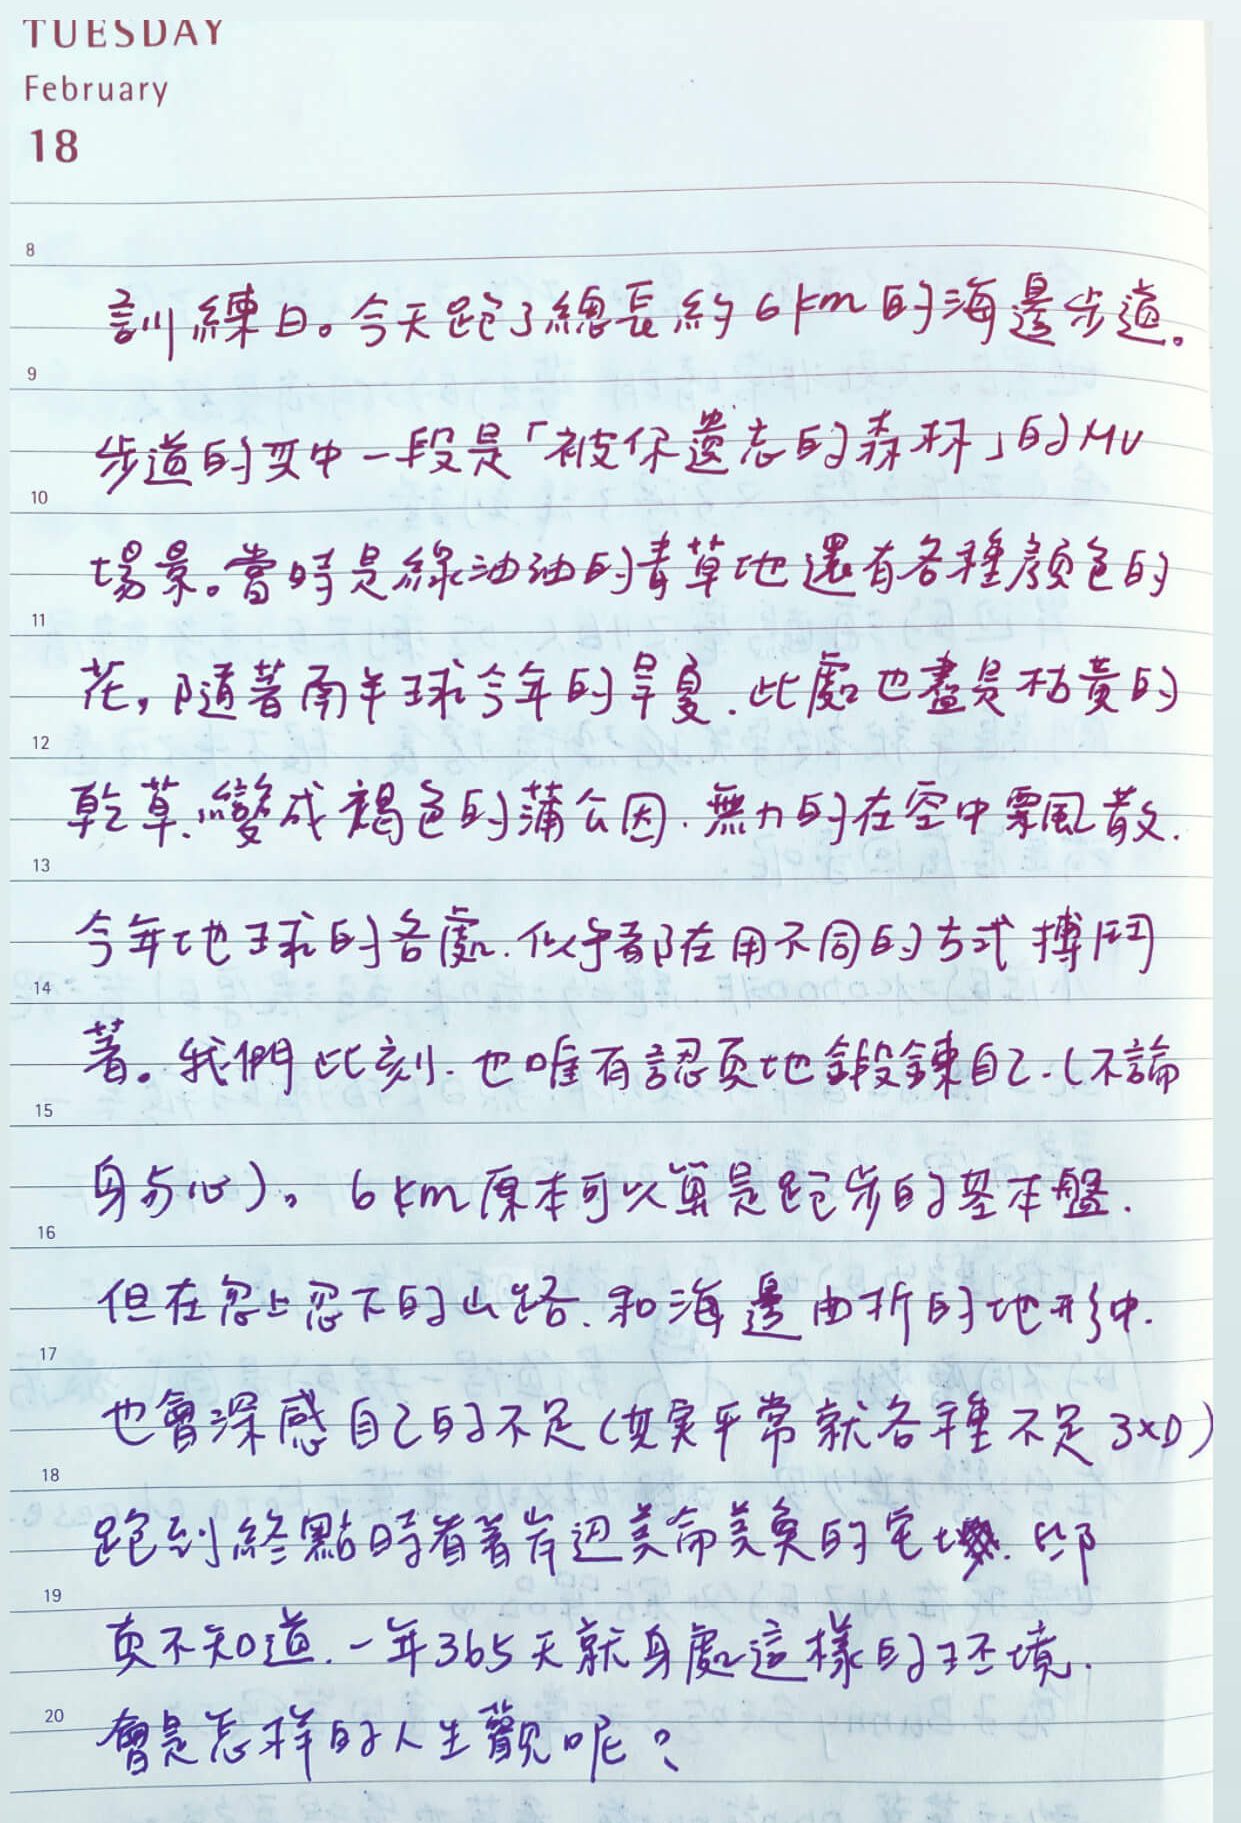 TUESDAY
February
18
8
訓練日。今天跑了總長約6km的海邊步道。
9
步道的其中一段是「被你遺忘的森林」的MV
10
場景。當時是綠油油的青草地還有各種顏色的
11
花,隨著南半球今年的旱夏.此處也盡是枯黃的
12
乾草.變成褐色的蒲公因.無力的在空中飄散.
13
今年地球的各處.似乎都在用不同的方式搏鬥
14
著。我們此刻.也唯有認真地鍛鍊自己.(不論
15
身与心)。6km原本可以算是跑步的基本盤.
16
但在忽上忽下的山路.和海邊曲折的地形中.
17
也會深感自己的不足(其実平常就各種不足3xD)
18
跑到終點時看著岸辺美侖美奐的宅.卻
19
真不知道.一年365天就身處這樣的环境.
20
會是怎样的人生觀呢?